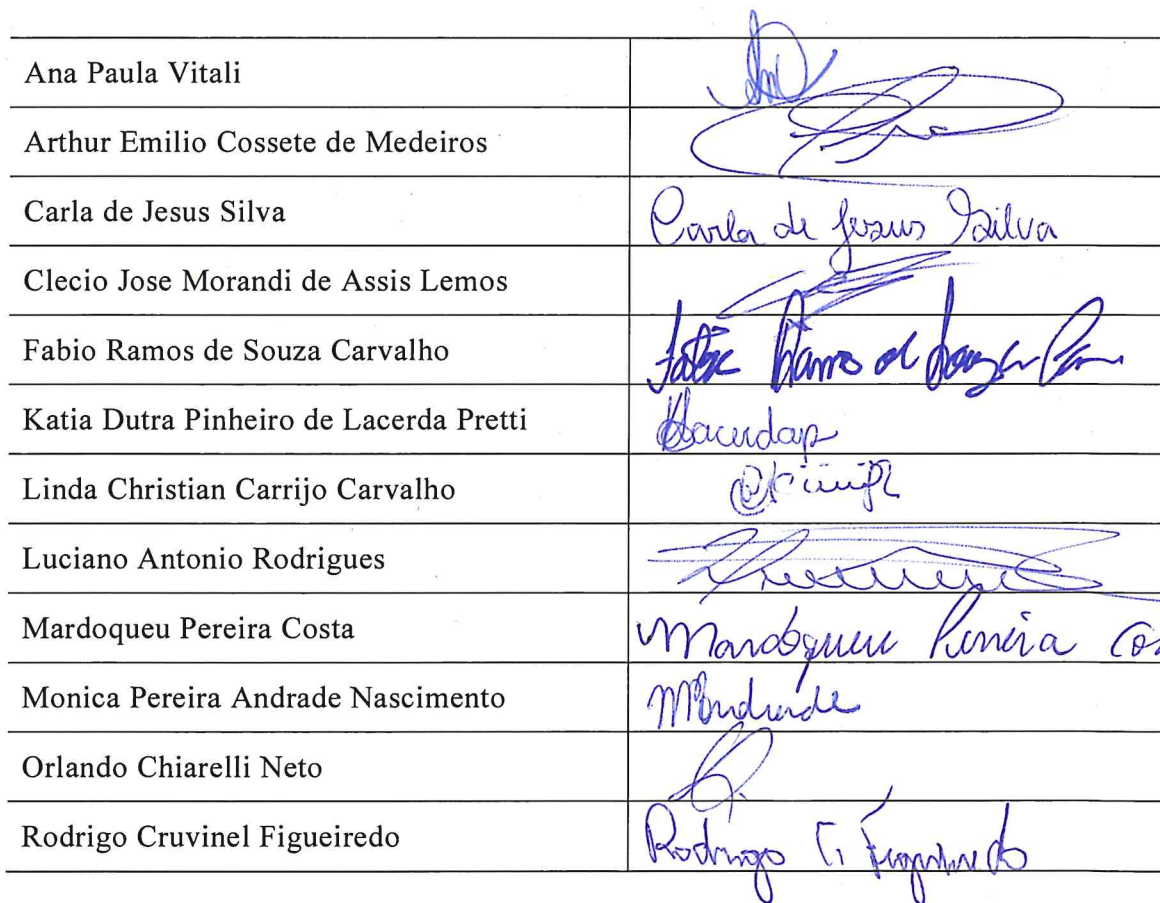 Ana Paula Vitali
Arthur Emilio Cossete de Medeiros
Carla de Jesus Silva Carla de Jesus Silva
Clecio Jose Morandi de Assis Lemos
Fabio Ramos de Souza Carvalho
Katia Dutra Pinheiro de Lacerda Pretti
Linda Christian Carrijo Carvalho
Luciano Antonio Rodrigues
Mardoqueu Pereira Costa Mardoqueu Pereira Cos
Monica Pereira Andrade Nascimento MAndrade
Orlando Chiarelli Neto
Rodrigo Cruvinel Figueiredo Rodrigo C. Figueiredo